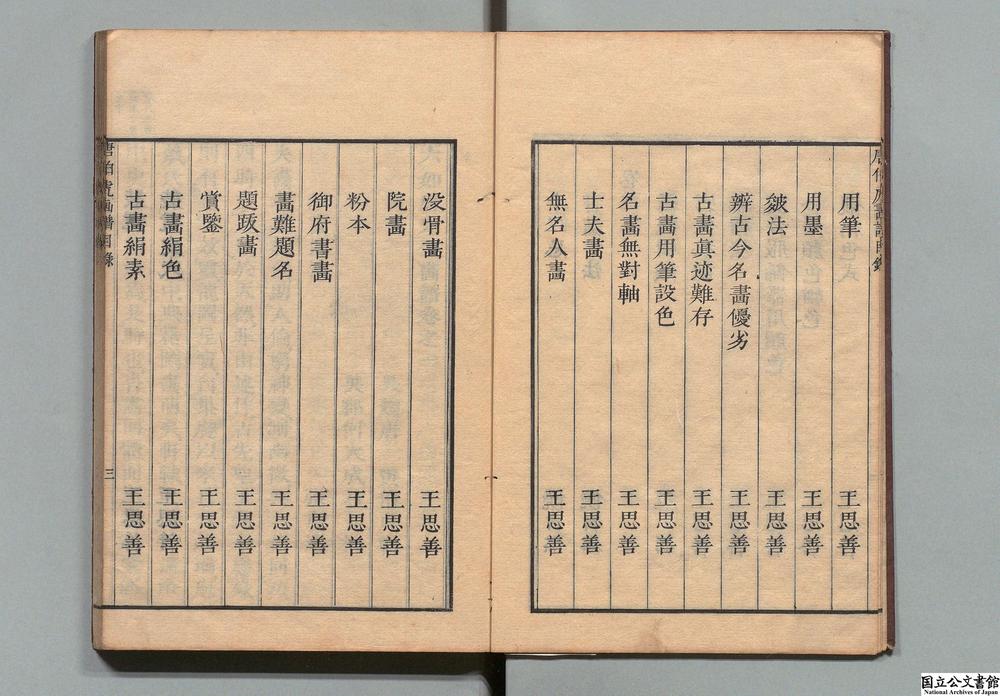 用筆 王思善
用墨 王思善
皴法 王思善
辨古今名畫優劣 王思善
古畫真迹難存 王思善
古畫用筆設色 王思善
名畫無對軸 王思善
士夫畫 王思善
無名人畫 王思善
没骨畫 王思善
院畫 王思善
粉本 王思善
御府書畫 王思善
畫難題名 王思善
題跋畫 王思善
賞鑒 王思善
古畫絹色 王思善
古畫絹素 王思善
唐伯虎画譜目錄 三
国立公文書館
National Archives of Japan